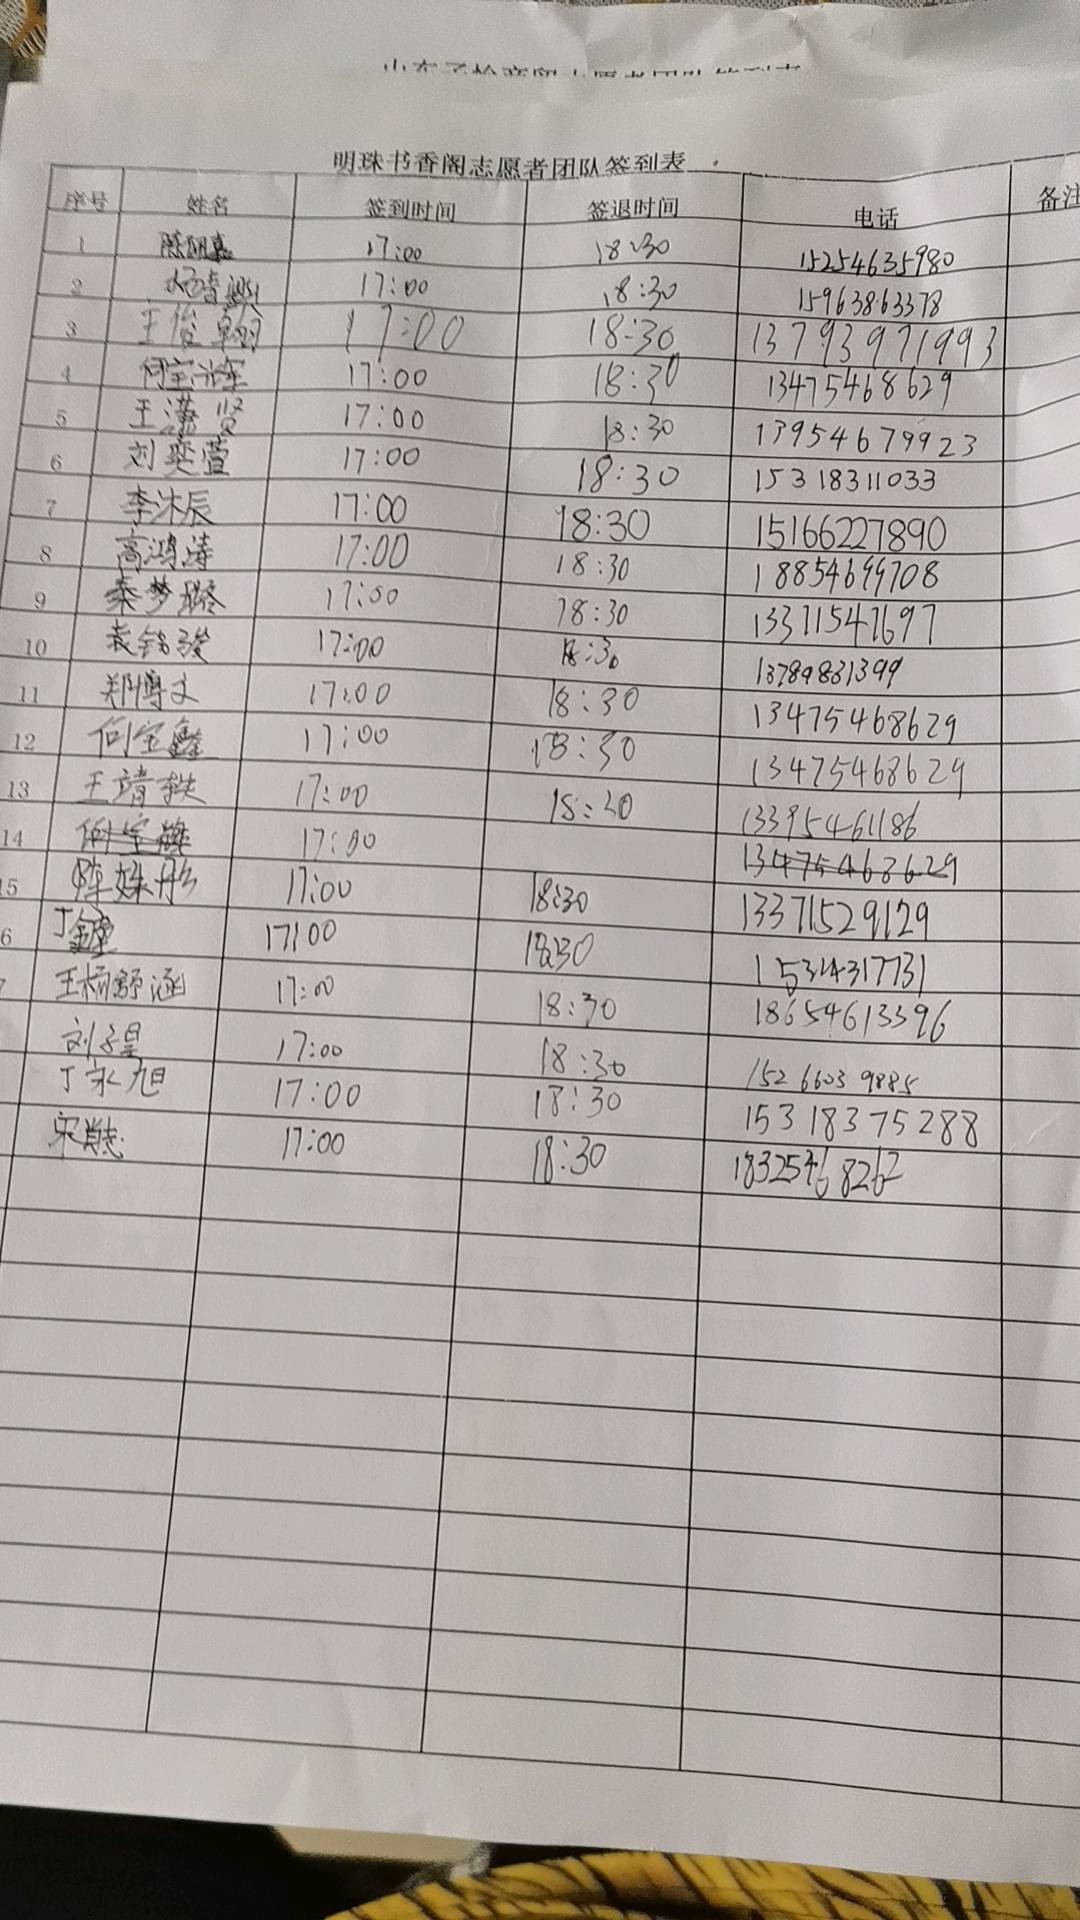 明珠书香阁志愿者团队签到表
序号 姓名 签到时间 签退时间 电话 备注
1 17:00 18:30 15254635980
2 17:00 18:30 15963863378
3 王俊 17:00 18:30 13793971993
4 何宝辉 17:00 18:30 13475468629
5 王潇贤 17:00 18:30 13954679923
6 刘奕萱 17:00 18:30 15318311033
7 李沐辰 17:00 18:30 15166227890
8 高鸿涛 17:00 18:30
9 秦梦璐 17:00 18:30 13371547697
10 袁铭骏 17:00 18:30 13789831399
11 郑博文 17:00 18:30 13475468629
12 何宝鑫 17:00 18:30 13475468629
13 王靖轶 17:00 18:30 13395461186
14 何宝 17:00 13475468629
15 陈姝彤 17:00 18:30 13371529129
6 丁 17:00 18:30 15314317731
7 王杨舒涵 17:00 18:30 18654613396
刘子昊 17:00 18:30 15266039885
丁永旭 17:00 18:30 15318375288
宋 17:00 18:30 18325468262